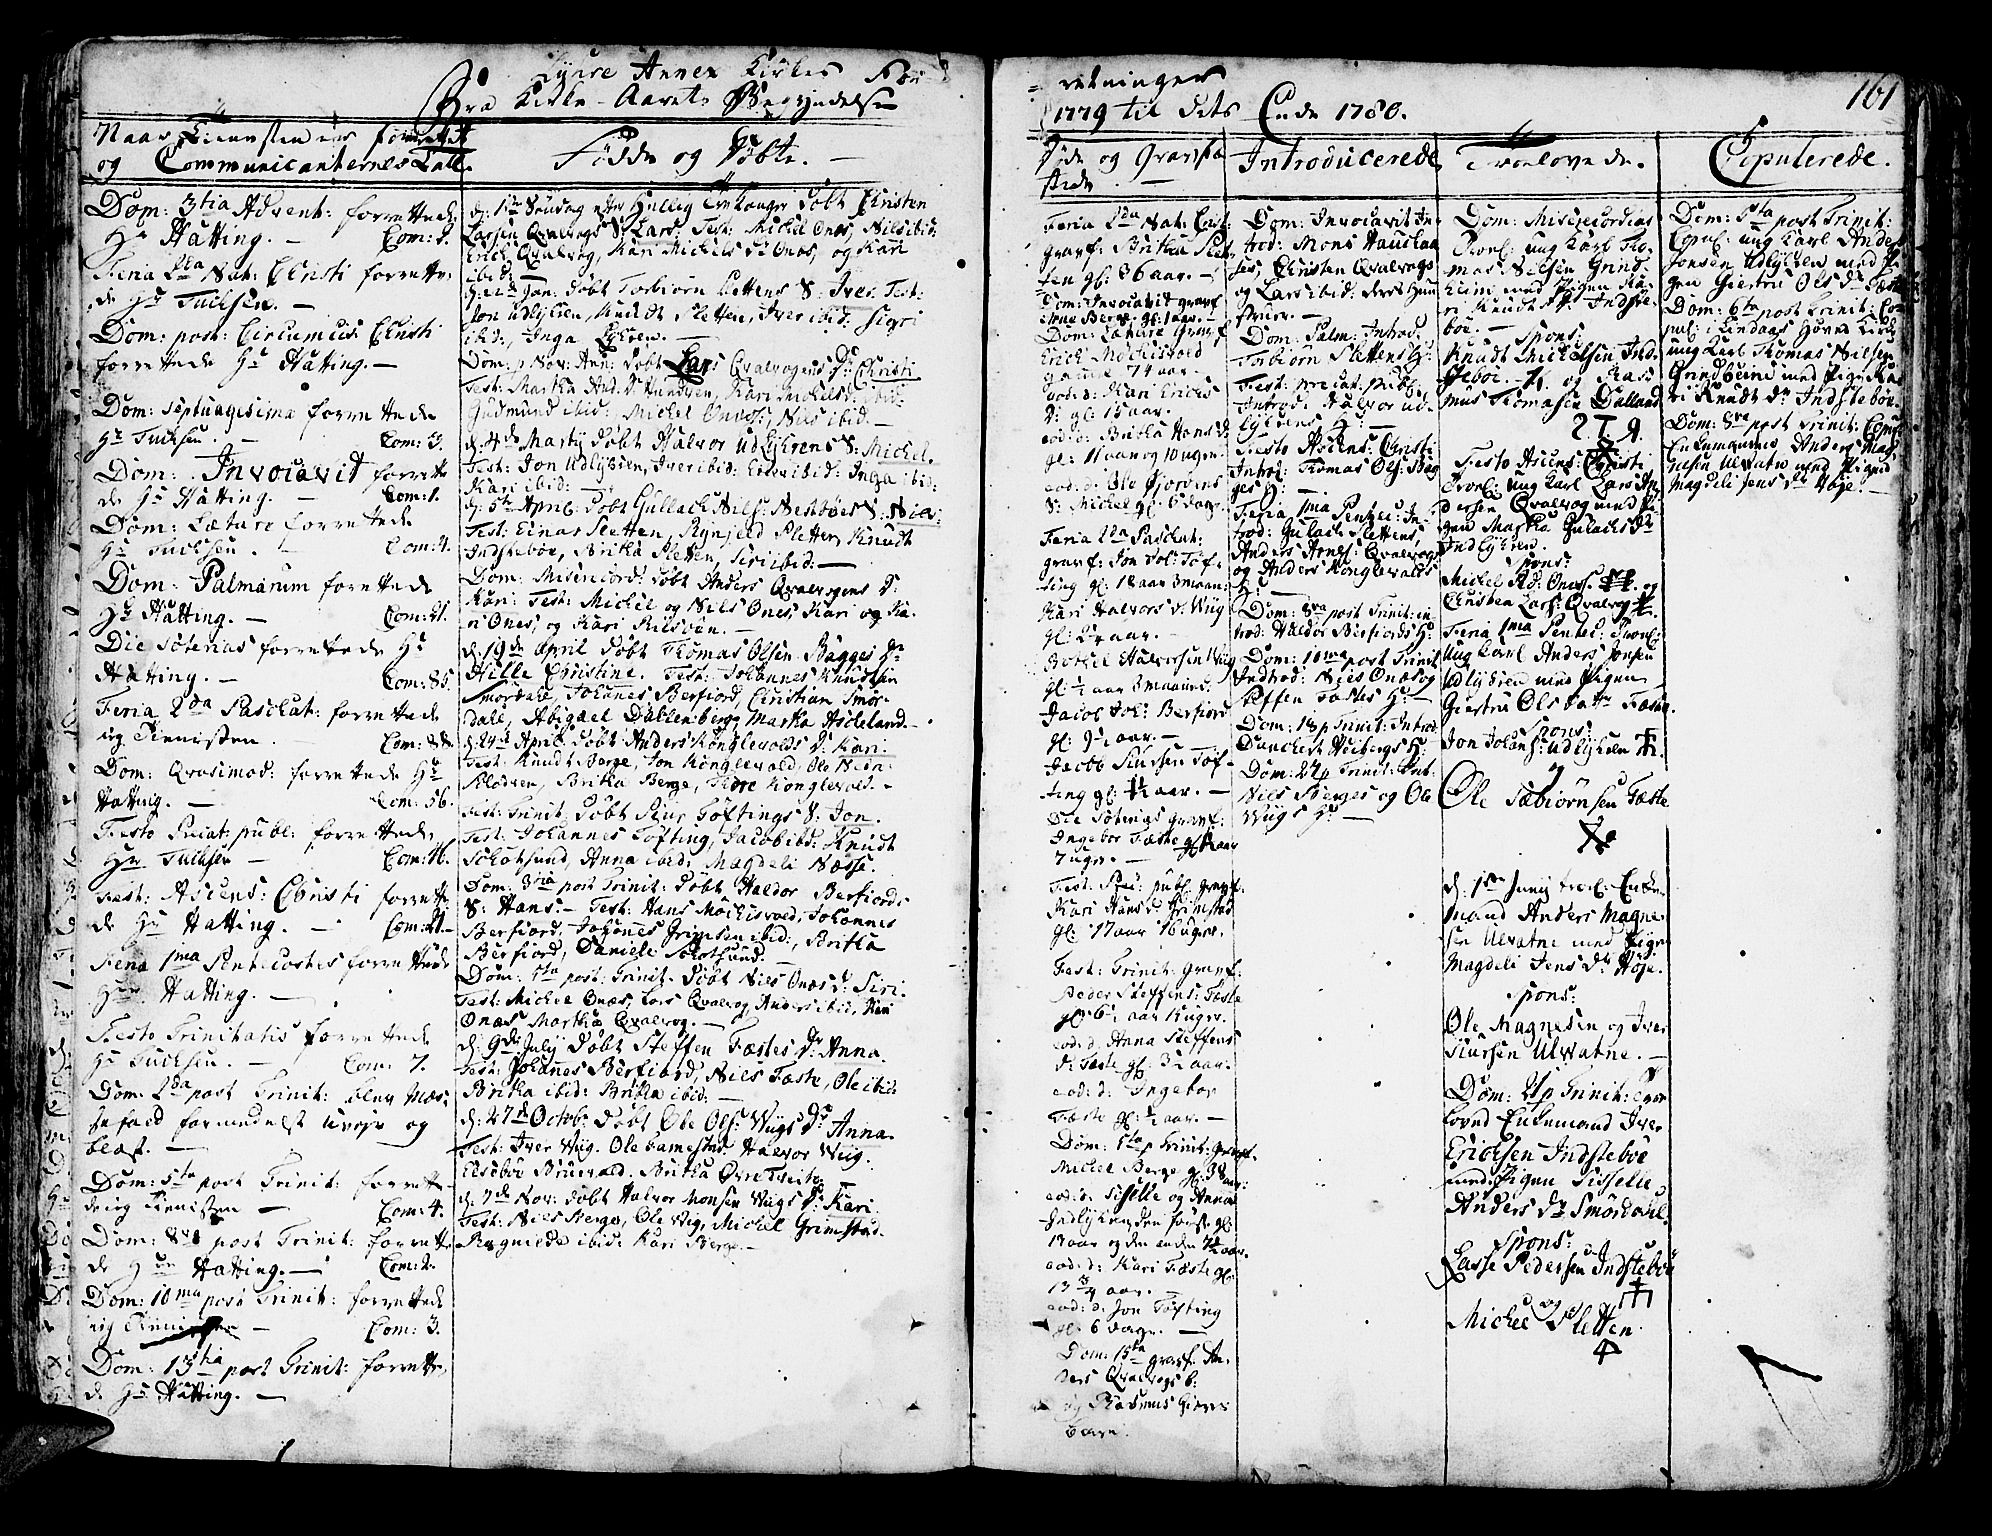 Annex Kirkes For
retninger
Fra Kirke-Aarets Begyndelse
1779 til dets Ende 1780.
161
Naar Tienesten er forrettet
og Communicanternes Tall.
Dom: 3tia Advent: forrettede
Hr Hatting. — Com: 9.
Feria 2da Nat: Christi forrette:
de Hr Tuchsen. —
Dom: post: Circumcis: Christi
forrettede Hr Hatting. —
Dom: Septuagesima forrettede
Hr Tuchsen. — Com: 3.
Dom: Invocavit forrette
de Hr Hatting. — Com: 1.
Dom: Lætare forrettede
Hr Tuchsen. — Com: 4.
Dom: Palmarum forrettede
Hr Hatting. — Com: 21.
Die Soterias forrettede Hr
Hatting. — Com: 85.
Feria 2da Paschat: forrettede
ieg Tienisten. — Com: 88.
Dom: Qvasimod: forrettede Hr
Hatting. — Com: 56.
Festo Precat: publ: forrettede
Hr Tuchsen — Com: 16.
Fest: Ascens: Christi forrette
de Hr Hatting. — Com: 21.
Feria 1ma Pentecostes forrettede
Hr Hatting. —
Festo Trinitatis forrettede
Hr Tuchsen. — Com: 7.
Dom: 2da post Trinit: blev Mes-
sefald formedelst Uvejr og
blæst. —
Dom: 5ta post Trinit: forrette-
de ieg Tienisten — Com: 4.
Dom: 8va post Trinit: forrette
de Hr Hatting. — Com: 2.
Dom: 10ma post Trinit: forrettede
ieg Tienisten — Com: 3.
Dom: 13tia post Trinit: forrette,
de Hr Hatting. —
Fødde og Døbte. —
d: 1ste Søndag efter Hellig Tre Konger døbt Christen
Larsen Qvalvogs S: Lars. Test: Michel Onæs, Nils ibid:
Erich Qvalvog, Kari Michels Dr Onæs, og Kari
ibid: —
Jan: døbt Torbiørn Slettens S: Iver. Test:
Jon Udlykien, Knudt Sletten, Iver ibid: Sigri
ibid:, Inga Lykren. —
Dom: p Nov: Ann: døbt Lars Qvalvogens Dr: Christi
Test: Martha And: Dr Kari Michels D: ibid:
Gudmund ibid: Michel Onnes:, Nils ibid: —
d: 4de Martij døbt Halvor Udlykrens S: Michel.
Test: Jon Udlykien, Iver ibid: ibid: Inga ibid:
Kari ibid: —
d: 5te April: døbt Gullach Nils: S: Nils:
Test: Einar Sletten, Rynjeld Sletten, Knudt
Indstebøe, Britha Sletten, Siri ibid: —
Dom: Misericord: døbt Anders Qvalvogens D:
Kari: Test: Michel og Nils Ones, Kari og Ka-
ri Ones, og Kari Rilsvøen. —
d: 19de April døbt Thomas Olsen Bagges Dr
Hille Christine. Test: Johannes Knudsen
Smordale, Johannes Berfiord, Christian Smør-
dall, Abigael Dallenberg, Martha Ascheland. —
d: 24de April: døbt Anders Konglevolds D: Kari.
Test: Knudt Berge, Jon Konglevold, Ole
Blodren, Britha Berge, Thore Konglevold. —
Fest: Trinit: døbt Siur Toftings S: Jon.
Test: Johannes Tofting, Jacob ibid: Knudt
Schotsund, Anna ibid: Magdeli Næsse.
Dom: 3tia post Trinit: døbt Haldor Berfiords
S: Hans. — Test: Hans Møchisvold, Johannes
Berfiord, Johannes Grimsen ibid:, Britha
Berfiord, Daniele Schotsund.
Dom: 5ta post: Trinit: døbt Nils Onæs D: Siri.
Test: Michel Onæs, Lars Qvalvog, Anders ibid, Kari
Onæs Martha Qvalvog. —
d: 9de July døbt Steffen Fæstes Dr Anna.
Test: Johannes Berfiord, Nils Fæste, Ole ibid:
Britha ibid: Britha ibid: —
d: 27de Octobr: døbt Ole Ols: Wiigs Dr Anna.
Test: Iver Wiig. Ole Halvor Wiig.
Elsebøe Bruevold. Britha Øvre Tveite. —
d: 7de Nov: døbt Halvor Monsen Wiigs D: Kari
Test: Nils Berge, Ole Wiig, Michel Grimstad.
Ragnilde ibid: Kari Berge. —
Døde og Gravsta
stede —
Feria 2da Nat: Christ:
gravf: Britha Slet-
ten gl: 36 aar. —
Dom: Invocavit gravf
Berge gl: 1 aar. —
Dom: Lætare gravf
Erich Mochisvold
gammel 74 aar.
eod: d: Kari Erichs
D: gl: 15 aar.
eod: d: Britha Hans d:
gl: 11 aar og 10 uger.
eod: d: Ole Fiordens
S: Michel gl: 6 dage.
Feria 2da Paschat:
gravf: Jon Jol: Tof-
ting gl: 18 aar 3 maan:
Kari Halvors D: Wiig
gl: 2 aar. —
Bothel Halversen Wiig
gl: ½ aar 3 maaned:
Jacob Joh: Berfiord
gl: 9½ aar. —
Jacob Siursen Tof-
ting gl: 1½ aar. —
Die Soterias gravf:
Ingebor Fæste gl: aar
7 uger. —
Fest: Prec: publ: gravf:
Kari Hans D: Grimstad
gl: 17 aar 16 uger.
Fest: Trinit: gravf:
Peder Steffens: Fæste
gl: 6 aar uger.
eod: d: Anna Steffens
D: Fæste gl: 3½ aar.
eod: d: Ingebor
Fæste gl: ½ aar. —
Dom: 5ta p Trinit: gravf.
Michel Berge gl: 38 aar:
eod: d: Siselle og Anna
Indlyken, den første gl:
13 aar og den anden 7½ aar.
eod: d: Kari Fæste gl:
13 3/4 aar. —
eod: d: Jon Tofting
gl: 6 dage. —
Dom: 15ta gravf. An-
ders Qvalvogs b:
og Rasmus Giers
barn.
Introducerede
Dom: Invocavit In
trod: Mons Haus
ses, Christen Qvalvogs
og Lars ibid: deres Hu-
struer. —
Dom: Palm: Introd:
Torbiørn Slettens H:
Fest: precat: publ:
Introd: Halvor Ud-
lykrens H: —
Festo Ascens: Christi
Introd: Thomas Ols: Bag
ges H: —
Feria 1ma Pentec: In-
trod: Gulach Slettens,
Anders Arnes: Qvalvogs
og Anders Konglevolds
H: —
Dom: 8va post Trinit: in-
trod: Haldor Berfiords H:
Dom: 10ma post Trinit
Introd: Nils Onæs og
Steffen Fæstes H: —
Dom: 18 p Trinit: Introd
H:
Dom: 24 p Trinit: Int:
Nils Berges og Ole
Wiigs H: —
Troelovede.
Dom: Misericordias
Troel: ung Karl Tho-
mas Nilsen Grind
heim med Pigen Ka-
ri Knudt Dr Indste-
bøe. —
Spons:
Knudt Michelsen Ind-
stebøe. og Ras-
mus Thomasen Dalland
Festo Ascens: Christi
Troel: ung Karl Lars An-
dersen Qvalvog med Pi-
gen Martha Gulachs Dr
Indlykren.
Spons:
Michel Onæs og
Christen Lars: Qvalvog
Feria 1ma Pentec: Troel:
Ung Karl Anders Jonsen
Udlykren med Pigen
Giertru Ols Datr Fæste.
Spons:
Jon Johans: Udlykren
Ole Sæbiørnsen Fæste
d: 1ste Junij troel: Enke-
mand Anders Magne-
sen Ulvatne med Pigen
Magdeli Jens Dr Høje.
Spons:
Ole Magnesen og Iver
Siursen Ulvatne. —
Dom: 21 p Trinit: troe-
lovede Enkemand Iver
Erichsen Indstebøe
med Pigen Siselle
Anders Dr Smørdahl.
Spons:
Lasse Pedersen Indstebøe
og
Michel Sletten
Copulerede.
Dom: 5ta post Trinit:
Copul: ung Karl Anders
Jonsen Udlykren med Pi-
gen Giertru Ols Dr Fæste
Dom: 6ta post Trinit: Co-
pul: i Lindaas Hoved Kirke
ung Karl Thomas Nilsen
Grindheim med Pige Ka-
ri Knudt Dr Indstebøe.
Dom: 8va post Trinit: Copul:
Enkemanden Anders Mag-
nesen Ulvatn med Pigen
Magdeli Jens Dr Høje. —